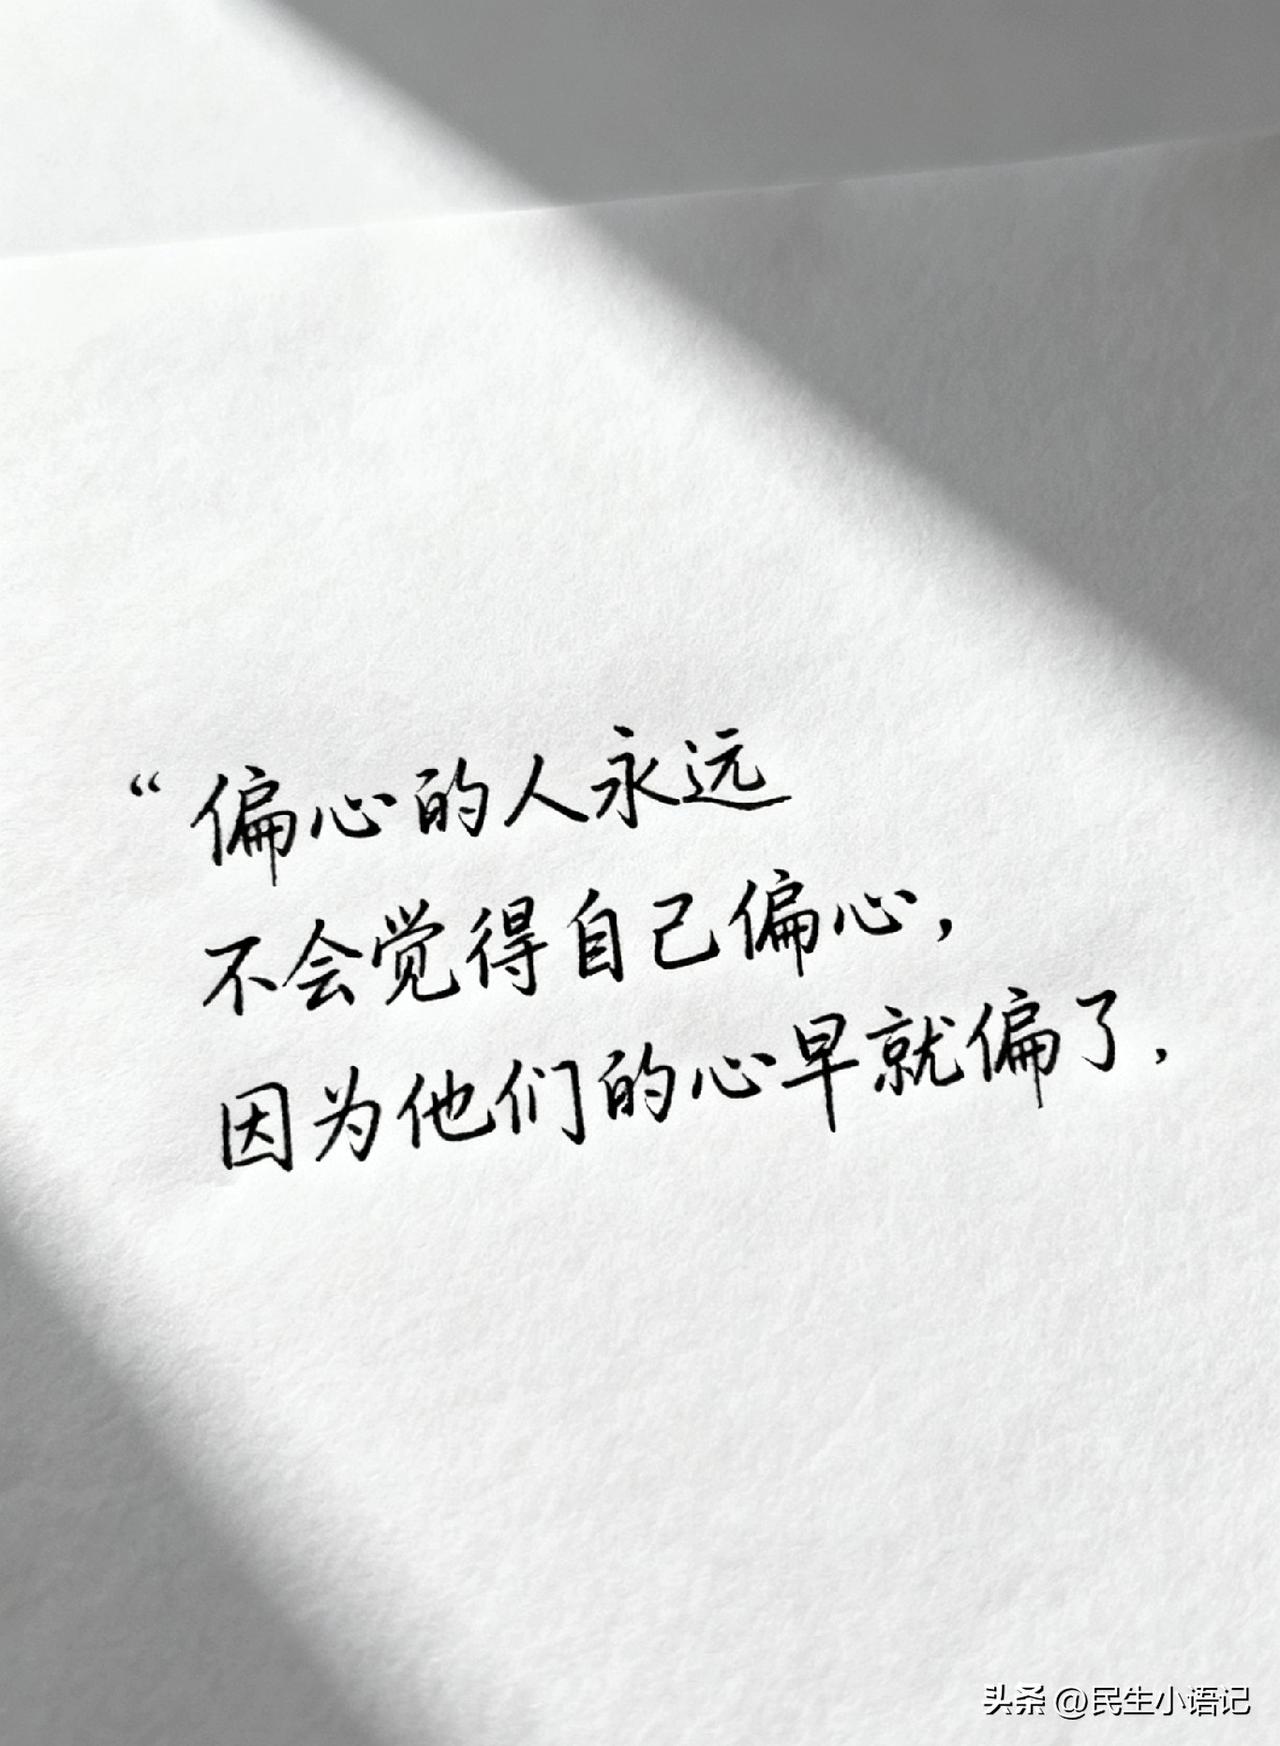 “偏心的人永远
不会觉得自己偏心，
因为他们的心早就偏了.
头条 @民生小语记